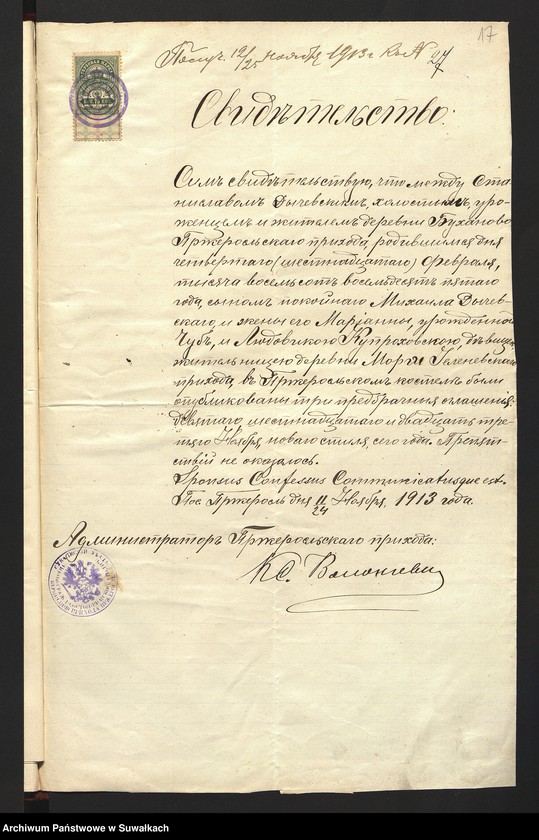 17
Получ. 12/25 ноября 1913 г. къ № 27
Свидѣтельство.
Симъ свидѣтельствую, что между Ста-
ниславомъ Дычевскимъ, холостымъ, уро-
женцемъ и жителемъ деревни Буханово
Пржеросльскаго прихода, родившимся дня
четвертаго (шестнадцатаго) Февраля,
тысяча восемьсотъ восемьдесятъ пятаго
года, сыномъ покойнаго Михаила Дычев-
скаго, и жены его Марьянны, урожденной
Чубъ, и Людовикою Купреховскою, дѣвицею
жительницею деревни Морги
прихода, въ Пржеросльскомъ костелѣ были
опубликованы три предбрачныя оглашенія:
девятаго, шестнадцатаго и двадцать тре-
тьяго Ноября, новаго стиля, сего года. Препят-
ствій не оказалось.
Sponsus Confessus Communicatusque est.
Пос. Пржеросль дня 11/24 Ноября, 1913 года.
Администраторъ Пржеросльскаго прихода:
Кс.
Archiwum Państwowe w Suwałkach